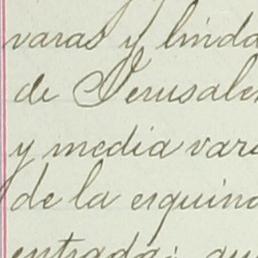 varas y linda
de Jerusale
y media vara
de la esquina
entrada; qu